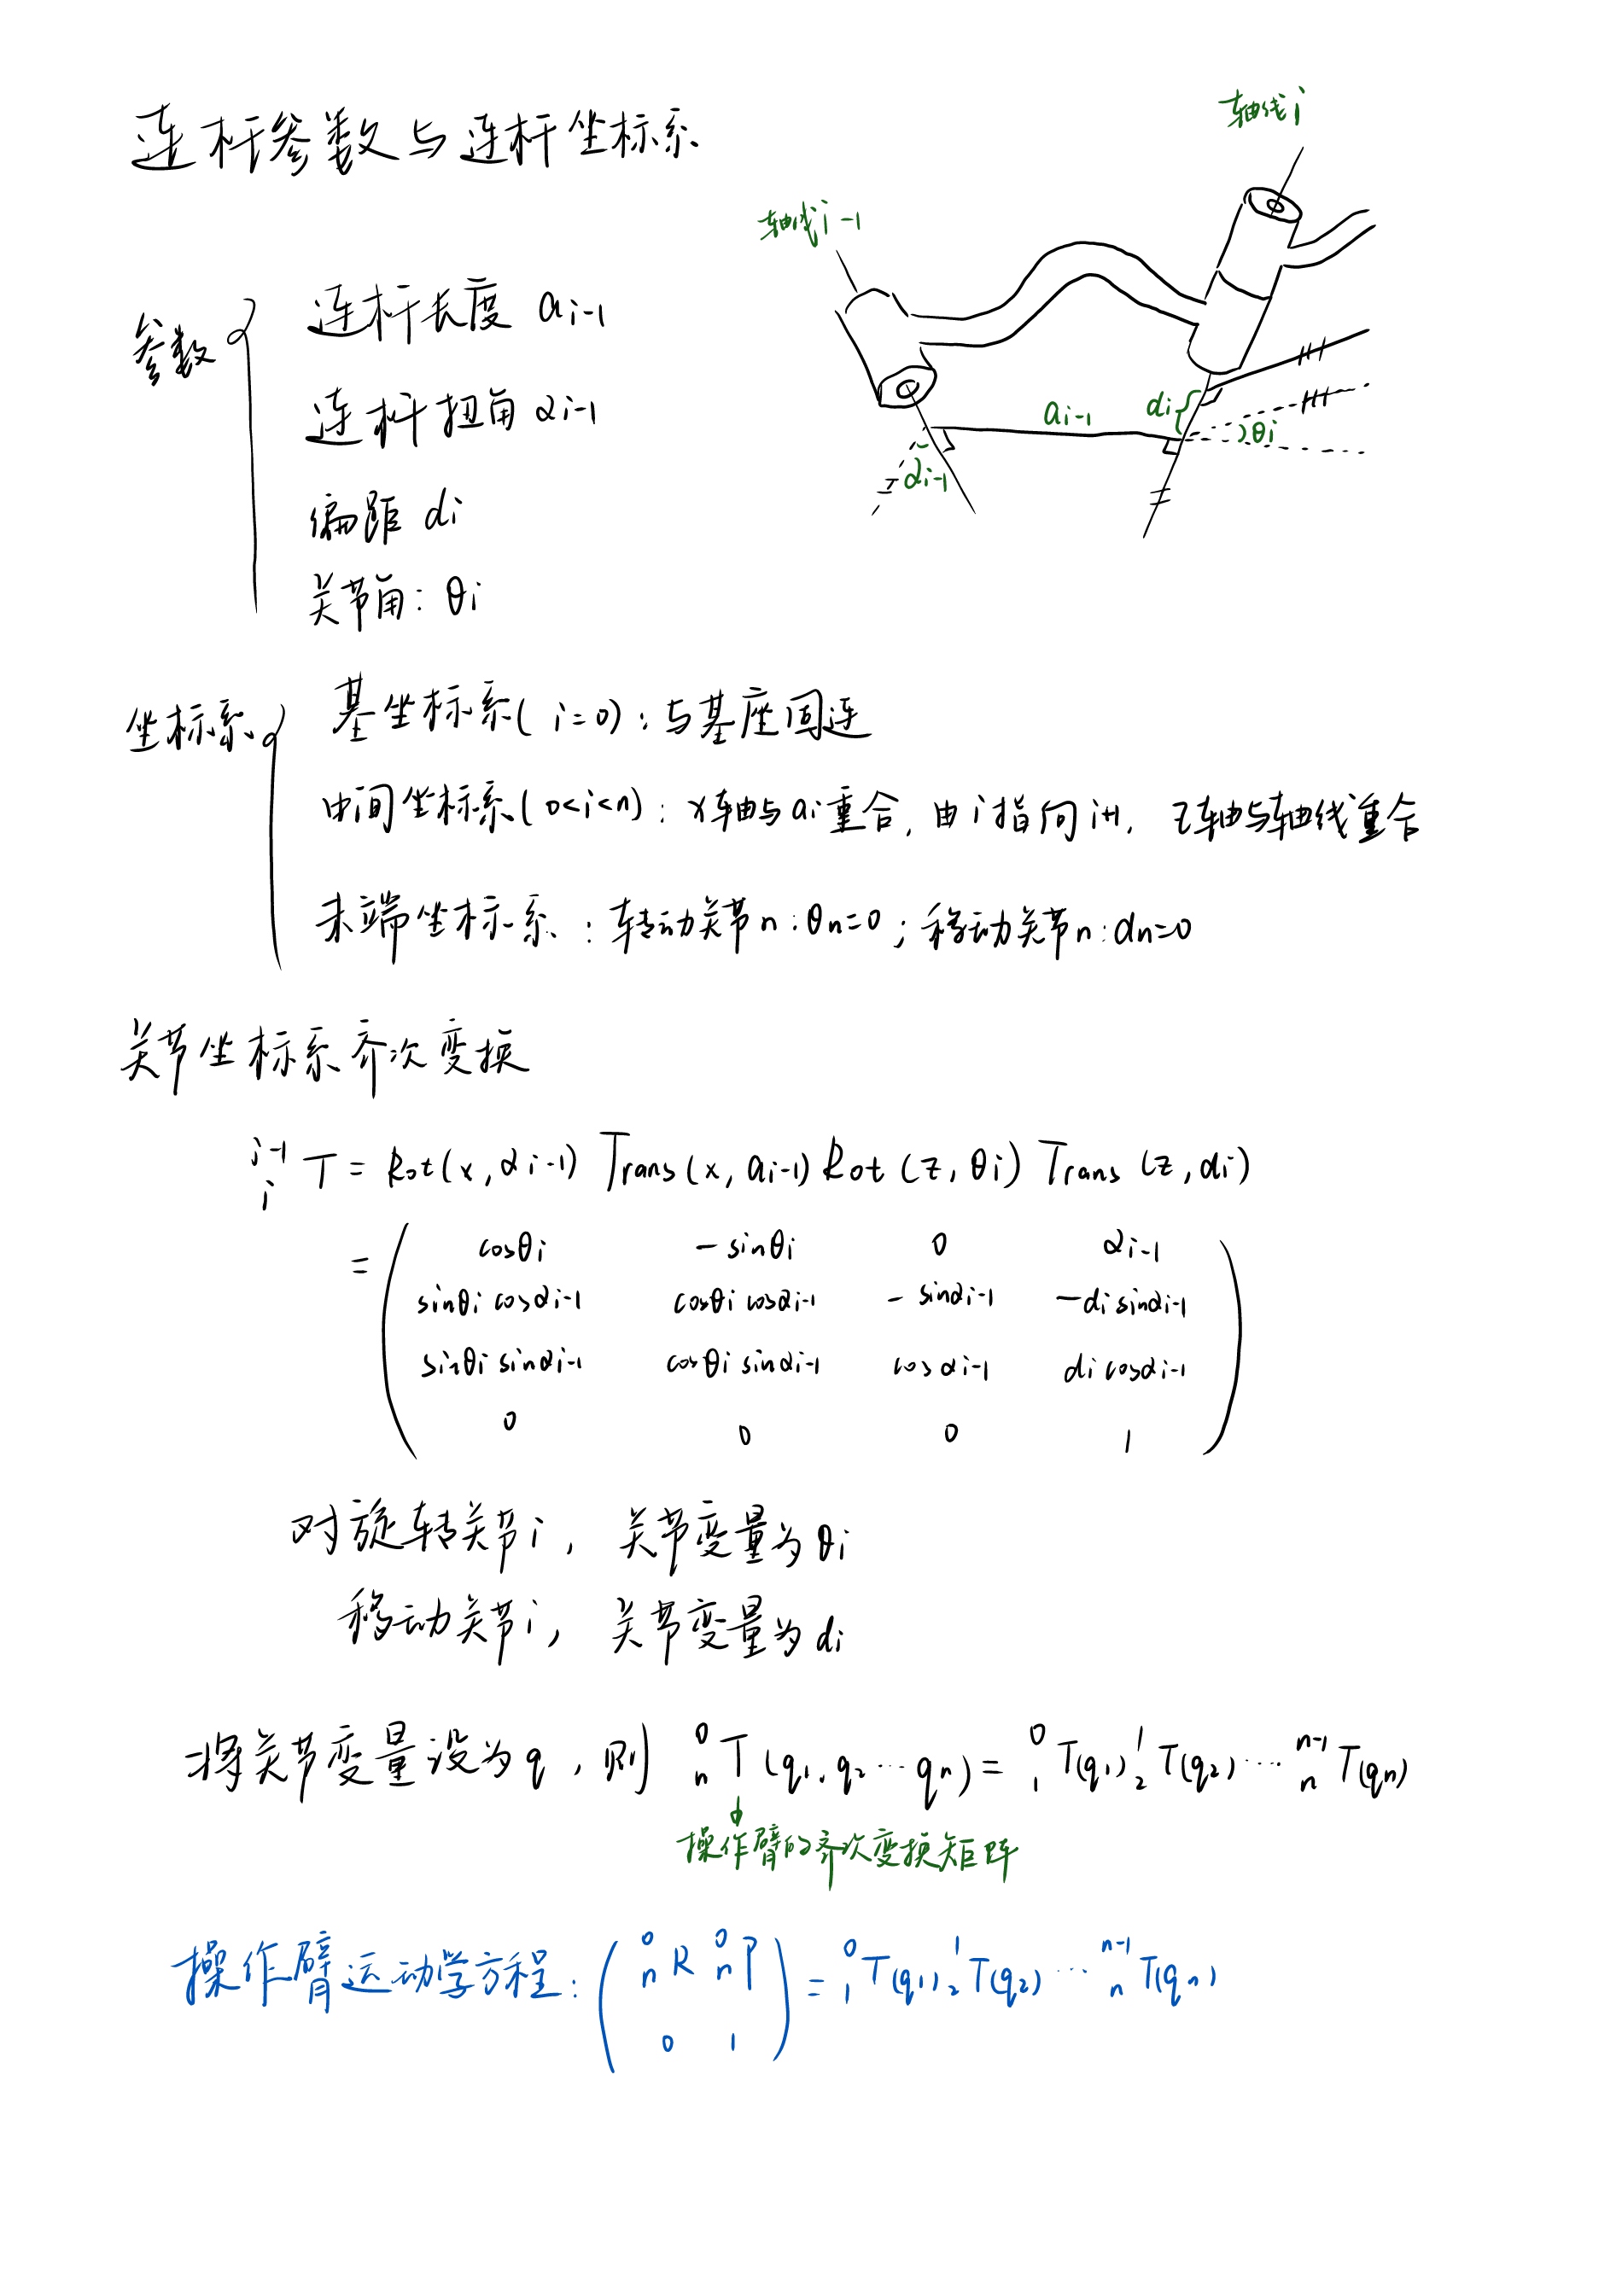 连杆参数与连杆坐标系
轴线i
轴线i-1
参数
连杆长度 ai-1
连杆扭角 αi-1
偏距 di
关节角: θi
ai-1
di
θi
αi-1
坐标系
基坐标系( i=0) : 与基座固连
中间坐标系(0<i<n) : x轴与ai重合, 由i指向i+1, z轴与轴线重合
末端坐标系 : 转动关节n : θn=0 ; 移动关节n : dn=0
关节坐标系齐次变换
i-1 i T = Rot(x, αi-1) Trans(x, ai-1) Rot(z, θi) Trans(z, di)
= ( cosθi -sinθi 0 αi-1
sinθi cosαi-1 cosθi cosαi-1 -sinαi-1 -di sinαi-1
sinθi sinαi-1 cosθi sinαi-1 cosαi-1 di cosαi-1
0 0 0 1 )
对旋转关节i, 关节变量为θi
移动关节i, 关节变量为di
将关节变量设为q, 则 0 n T (q1, q2 ··· qn) = 0 1 T(q1) 1 2 T(q2) ···· n-1 n T(qn)
操作臂的齐次变换矩阵
操作臂运动学方程: ( 0 n R 0 n P = 0 1 T(q1) 1 2 T(q2) ··· n-1 n T(qn)
0 1 )